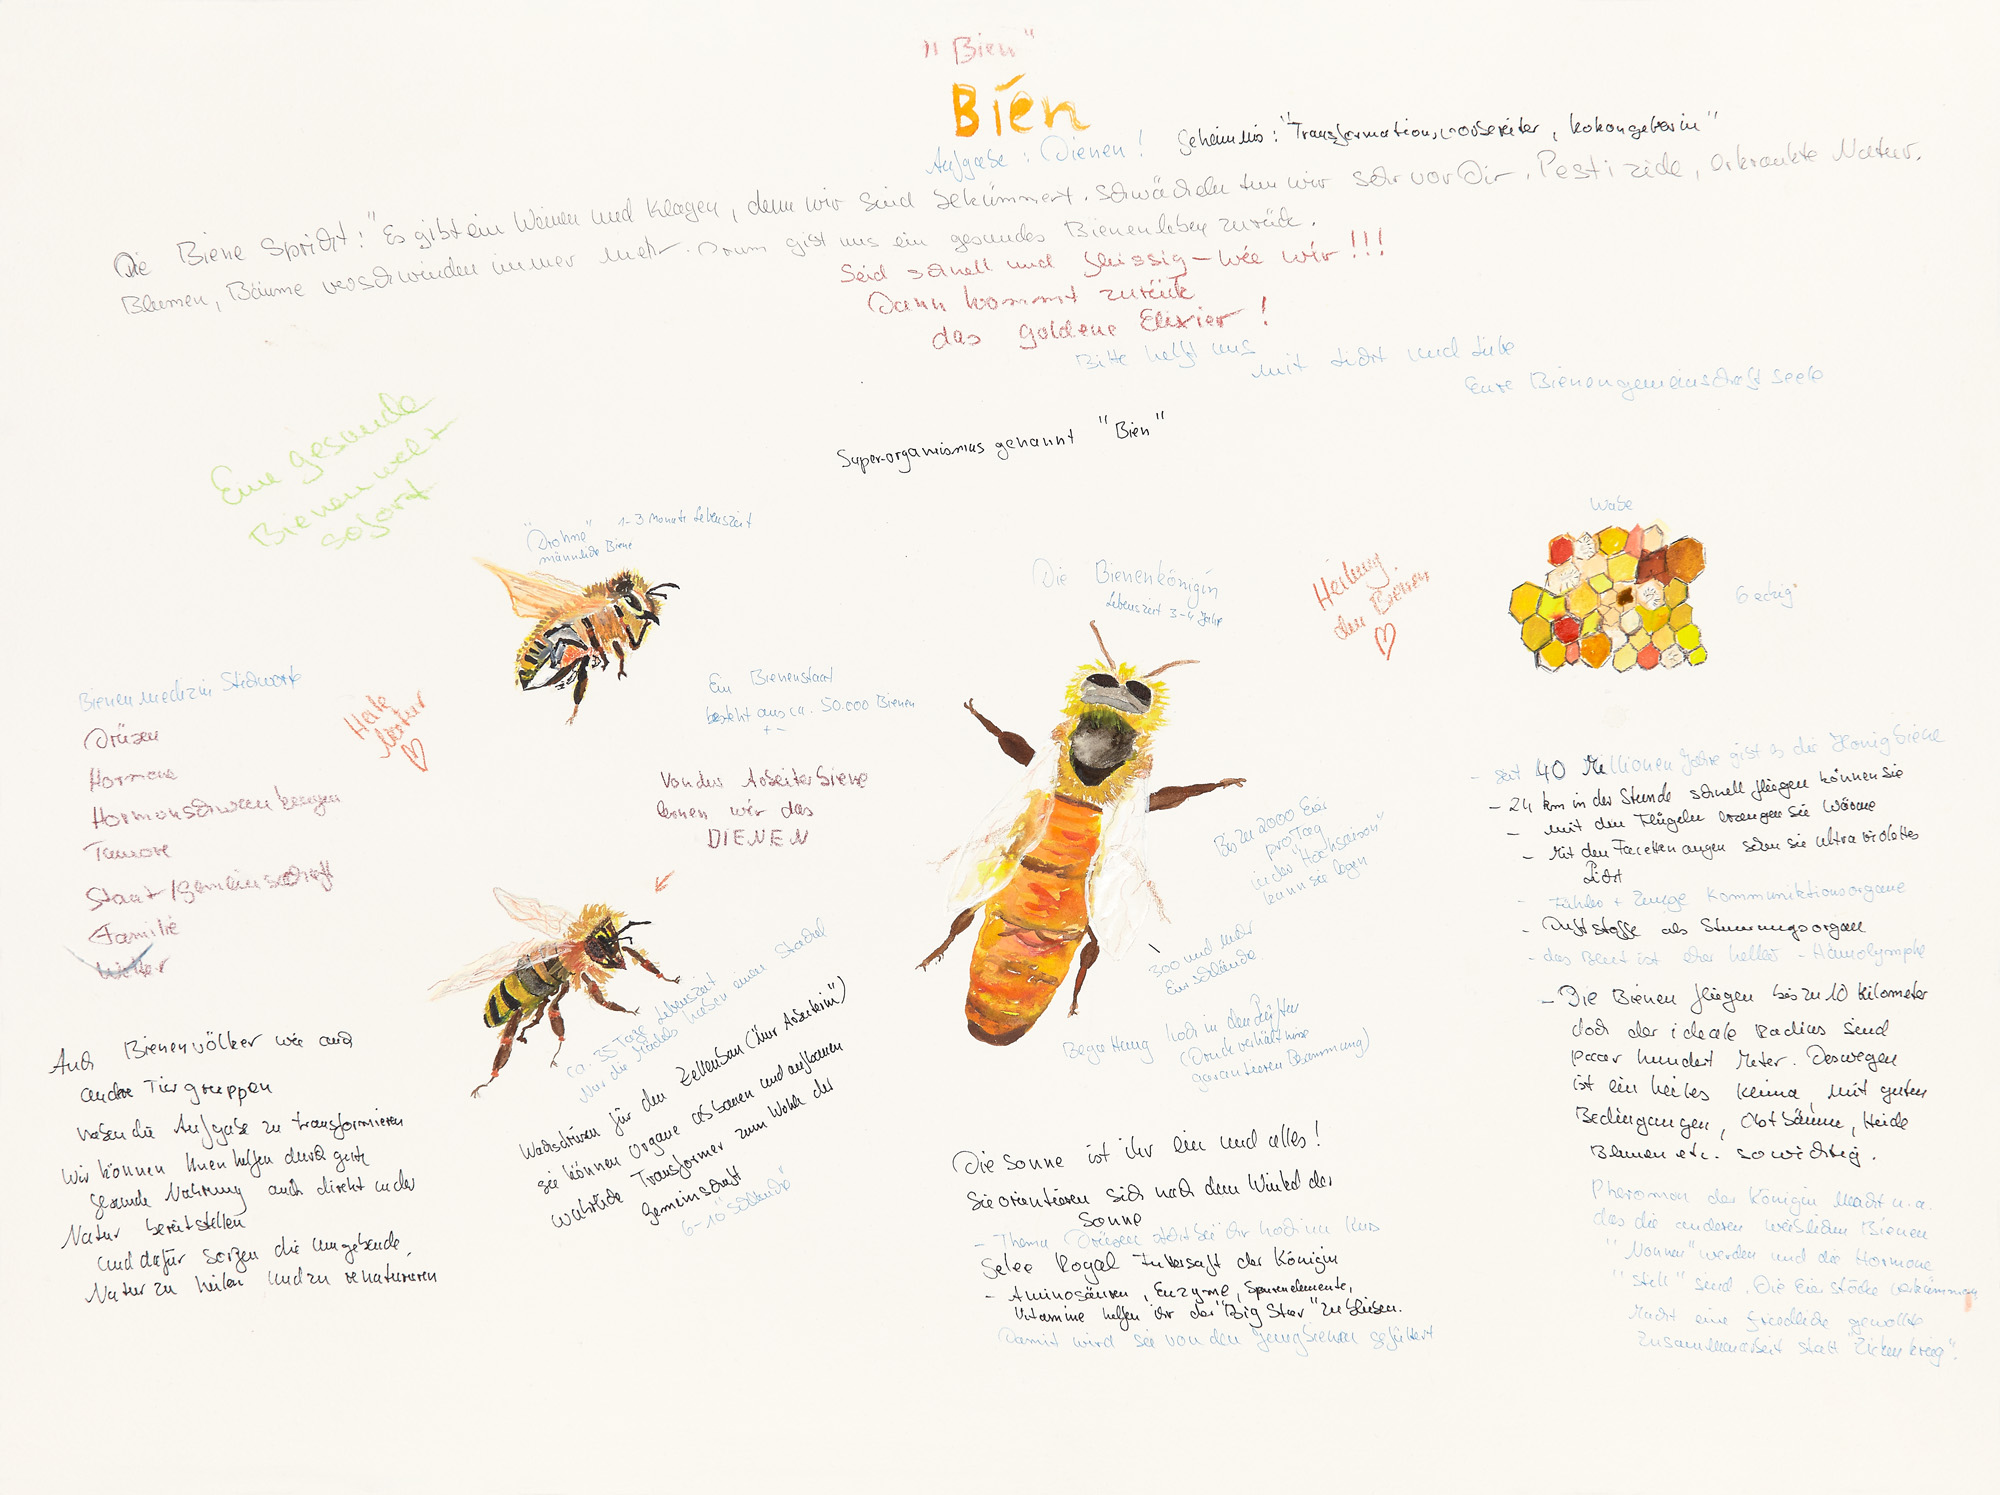 "Bien"
Bien
Aufgabe: Dienen!
Geheimnis: "Transformationsvorbereiter, Kokongeberin"
Die Biene Spricht: "Es gibt ein Weinen und Klagen, denn wir sind bekümmert. Schwächeln tun wir sehr vor Dir. Pestizide, erkrankte Natur.
Blumen, Bäume verschwinden immer mehr. Drum gibt uns ein gesundes Bienenleben zurück.
Seid schnell und fleissig – wie wir!!!
Dann kommt zurück
das goldene Elixier!
Bitte helft uns mit Licht und Liebe
Eure Bienengemeinschaftseele
Superorganismus genannt "Bien"
Eine gesunde
Bienenwelt
sofort
"Drohne" 1-3 Monate Lebenszeit
männliche Biene
Die Bienenkönigin
Lebenszeit 3-4 Jahre
Heilung
den Bienen
Wabe
6 eckig
Bienenmedizin Stichworte
Drüsen
Hormone
Hormonschwankungen
Tumore
Staat/Gemeinschaft
Familie
Heile
Natur
Ein Bienenstaat
besteht aus ca. 50.000 Bienen
+ -
Von der Arbeiterbiene
lernen wir das
DIENEN
Bis zu 2000 Eier
pro Tag
in der "Hochsaison"
kann sie legen
300 und mehr
Eischläuche
Begattung hoch in den Lüften
(Druckverhältnisse
garantieren Besamung)
ca. 35 Tage Lebenszeit
Nur die Mädels haben einen Stachel
Wachsdrüsen für den Zellenbau (nur Arbeiterin)
sie können Organe abbauen und aufbauen
Wahrliche Transformer zum Wohle der
Gemeinschaft
6-10 "Schläuche"
Auch Bienenvölker wie auch
andere Tiergruppen
haben die Aufgabe zu transformieren
Wir können Ihnen helfen durch gute
gesunde Nahrung auch direkt in der
Natur bereitstellen
und dafür sorgen die umgebende
Natur zu heilen und zu renaturieren
Die Sonne ist ihr ein und alles!
Sie orientieren sich nach dem Winkel der
Sonne
- Thema Drüsen steht bei ihr hoch im Kurs
Gelee Royal Futtersaft der Königin
- Aminosäuren, Enzyme, Spurenelemente,
Vitamine helfen ihr der "Big Star" zu bleiben.
Damit wird sie von den Jungbienen gefüttert
- seit 40 Millionen Jahre gibt es die Honigbiene
- 24 km in der Stunde schnell fliegen können sie
- mit den Flügeln erzeugen sie Wärme
- Mit den Facettenaugen sehen sie ultraviolettes
Licht
- Fühler + Zunge Kommuniktionsorgane
- Duftstoffe als Stimmungsorgan
- das Blut ist eher heller - Hämolymphe
- Die Bienen fliegen bis zu 10 Kilometer
doch der ideale Radius sind
paar hundert Meter. Deswegen
ist ein heiles Klima, mit guten
Bedingungen, Obstbäume, Heide
Blumen etc. so wichtig.
Pheromon der Königin macht u.a.
das die anderen weiblichen Bienen
"Nonnen" werden und die Hormone
"still" sind. Die Eierstöcke verkümmern
Macht eine friedliche gewollte
Zusammenarbeit statt "Zickenkrieg".